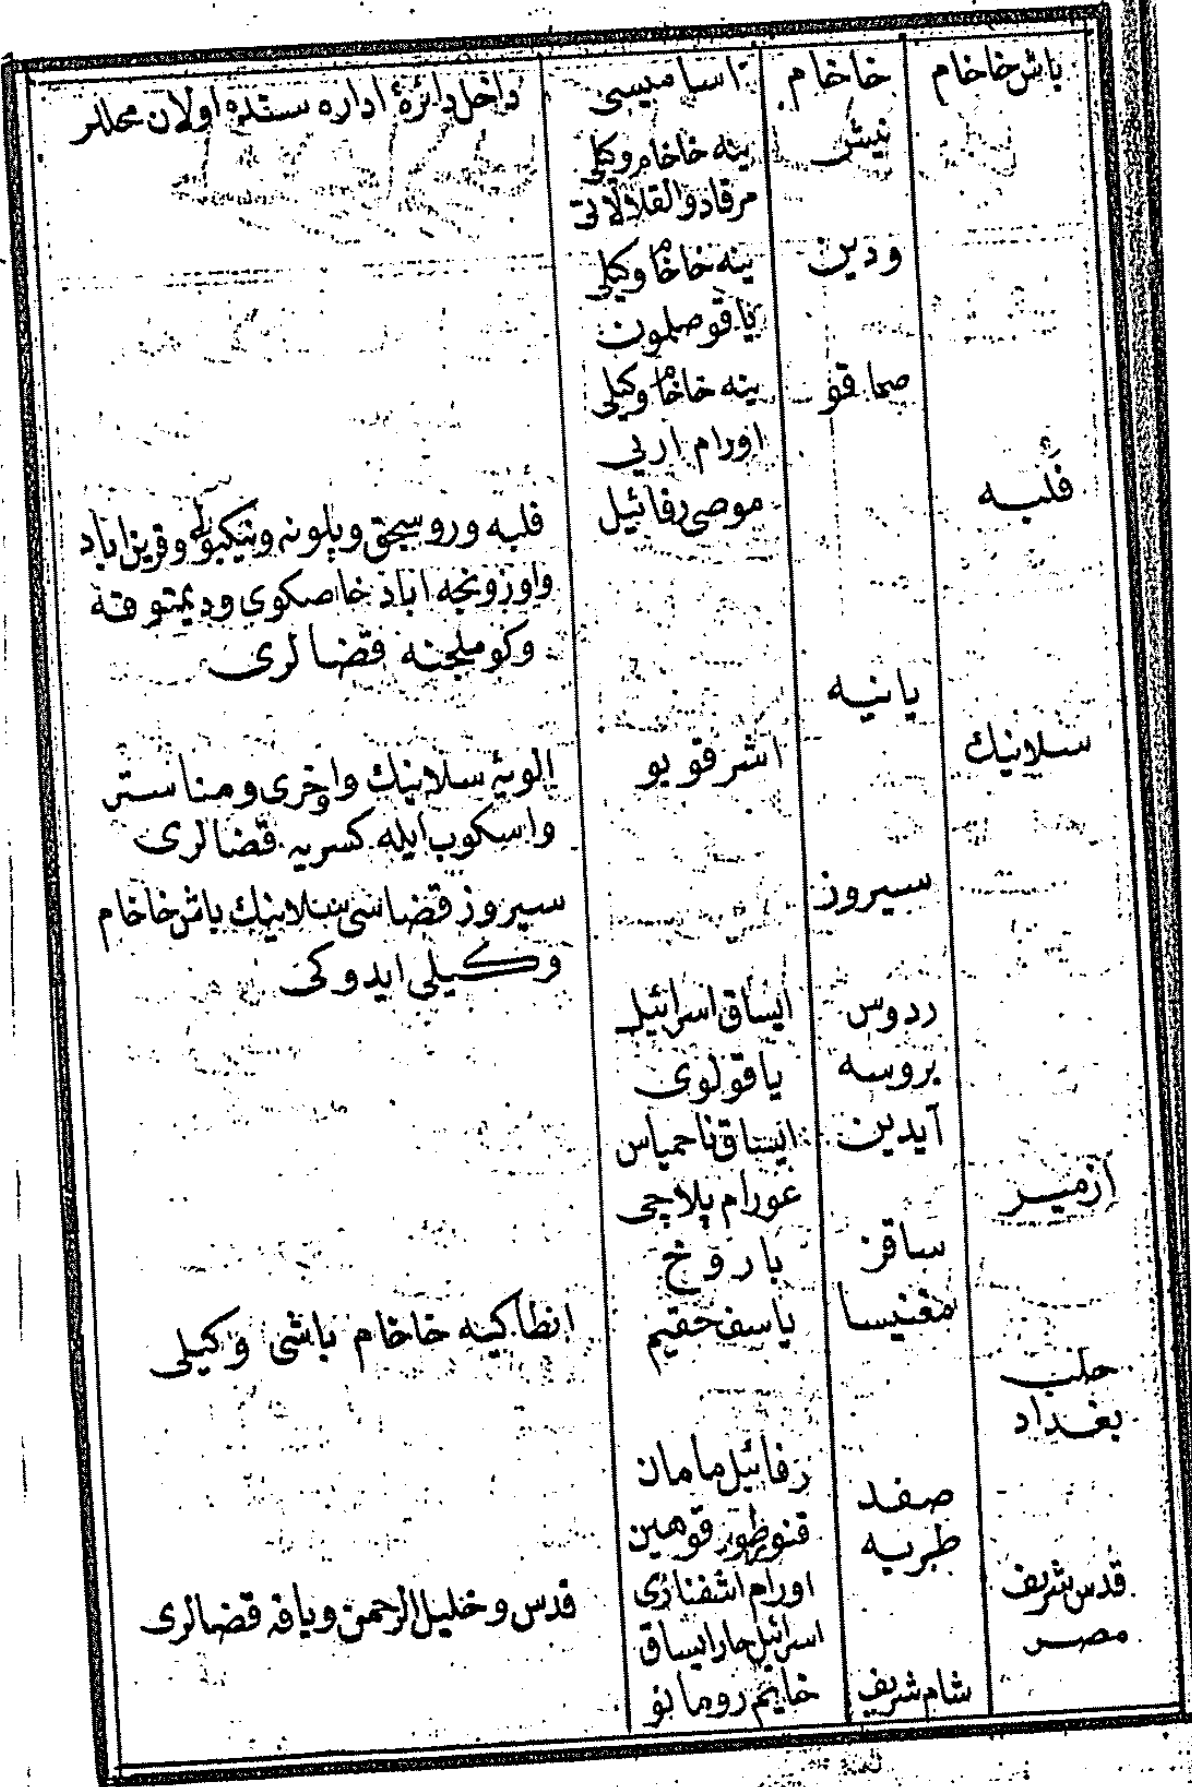 باش خاخام خاخام اسامیسی داخل دائرۀ اداره سنده اولان محللر
نیش ینه خاخام وکیلی
مرقاذو القلالاتی
ودین ینه خاخام وکیلی
یاقو صلمون
صماقو ینه خاخام وکیلی
اورام اربی
فلبه موصی رفائیل فلبه وروسجق وپلونه ونیکبولی وقرین اباد
واوزونجه اباد خاصکوی ودیمتوقه
وکوملجنه قضالری
یانیه
سلانیك اشرقویو الویۀ سلانیك واوخری ومناستر
واسکوب ایله کسریه قضالری
سیروز سیروز قضاسی سلانیك باش خاخام
وکیلی ایدوکی
ردوس ایساق اسرائیل
بروسه یاقو لوی
آیدین ایساق ناحمیاس
ازمیر غورام پلاچی
ساقز باروخ
مغنیسا یاسف حقیم انطاکیه خاخام باشی وکیلی
حلب
بغداد
صفد رفائیل مامان
طبریه قوهین
قدس شریف اورام اشقنازی قدس وخلیل الرحمن ویافه قضالری
مصر اسرائیل ایساق
شام شریف خایم رومانو